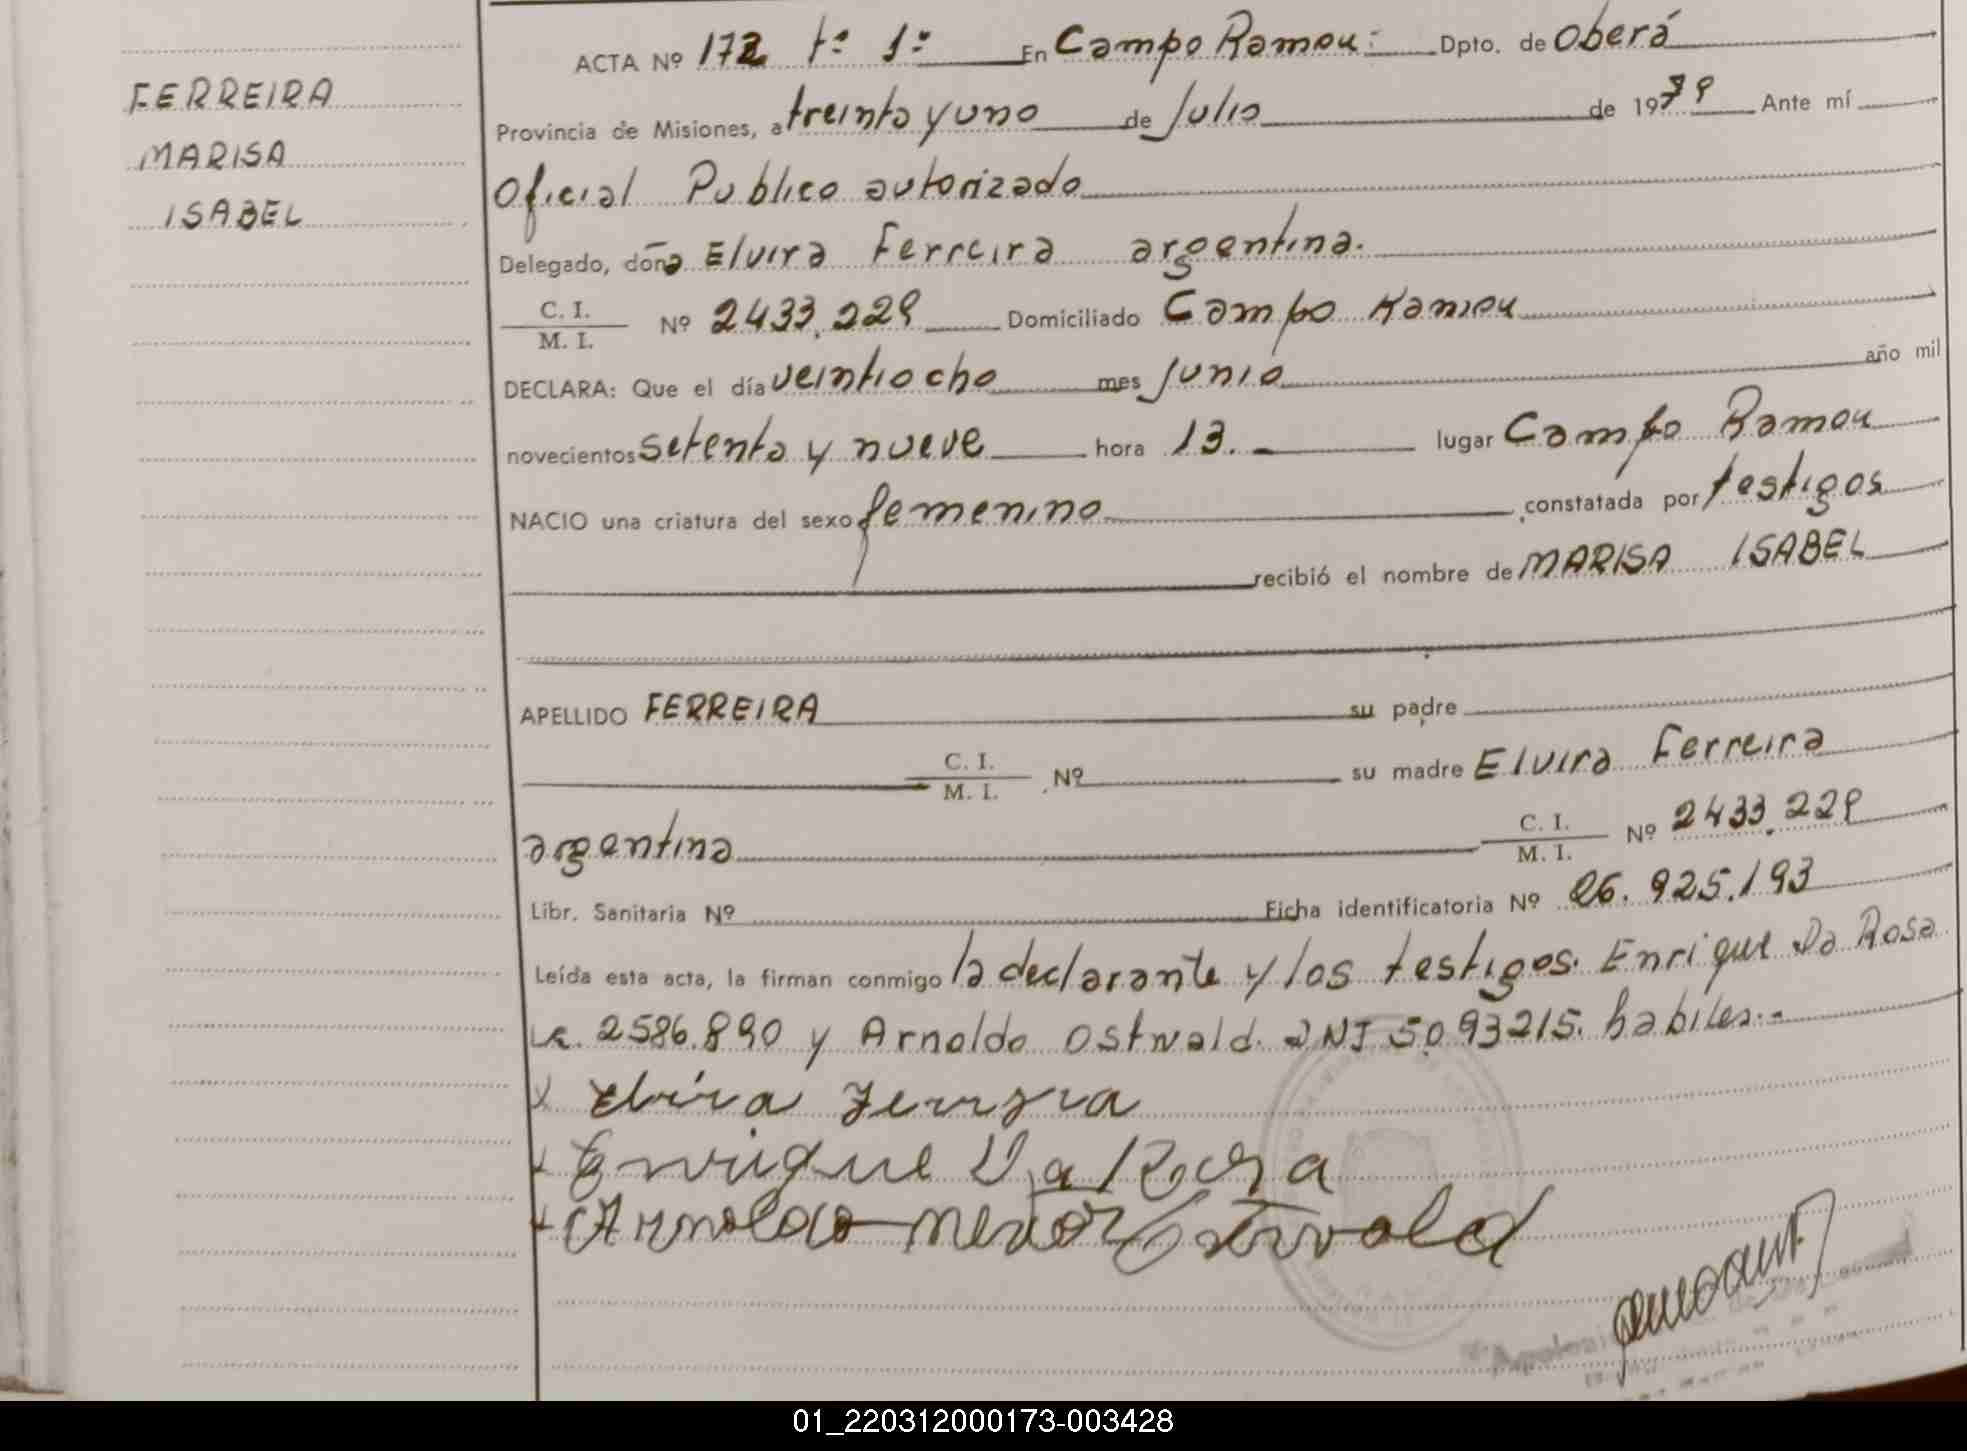 FERREIRA
MARISA
ISABEL
ACTA Nº 172 tº 1º En Campo Ramon: Dpto. de Oberá
Provincia de Misiones, a treinta y uno de Julio de 1979 Ante mí
Oficial Publico autorizado
Delegado, doña Elvira Ferreira argentina.
C. I.
M. I.
Nº 2433.229 Domiciliado Campo Ramon
DECLARA: Que el día veintiocho mes Junio año mil
novecientos setenta y nueve hora 13. lugar Campo Ramon
NACIO una criatura del sexo femenino constatada por testigos
recibió el nombre de MARISA ISABEL
APELLIDO FERREIRA su padre
C. I.
M. I.
Nº su madre Elvira Ferreira
argentina
C. I.
M. I.
Nº 2433.229
Libr. Sanitaria Nº Ficha identificatoria Nº 26.925.193
Leída esta acta, la firman conmigo la declarante y los testigos. Enrique Da Rosa
2586.890 y Arnoldo Ostwald. DNI 5.093215. habiles.-
Elvira Ferreira
Enrique Da Rosa
Arnoldo Ostwald
01_220312000173-003428